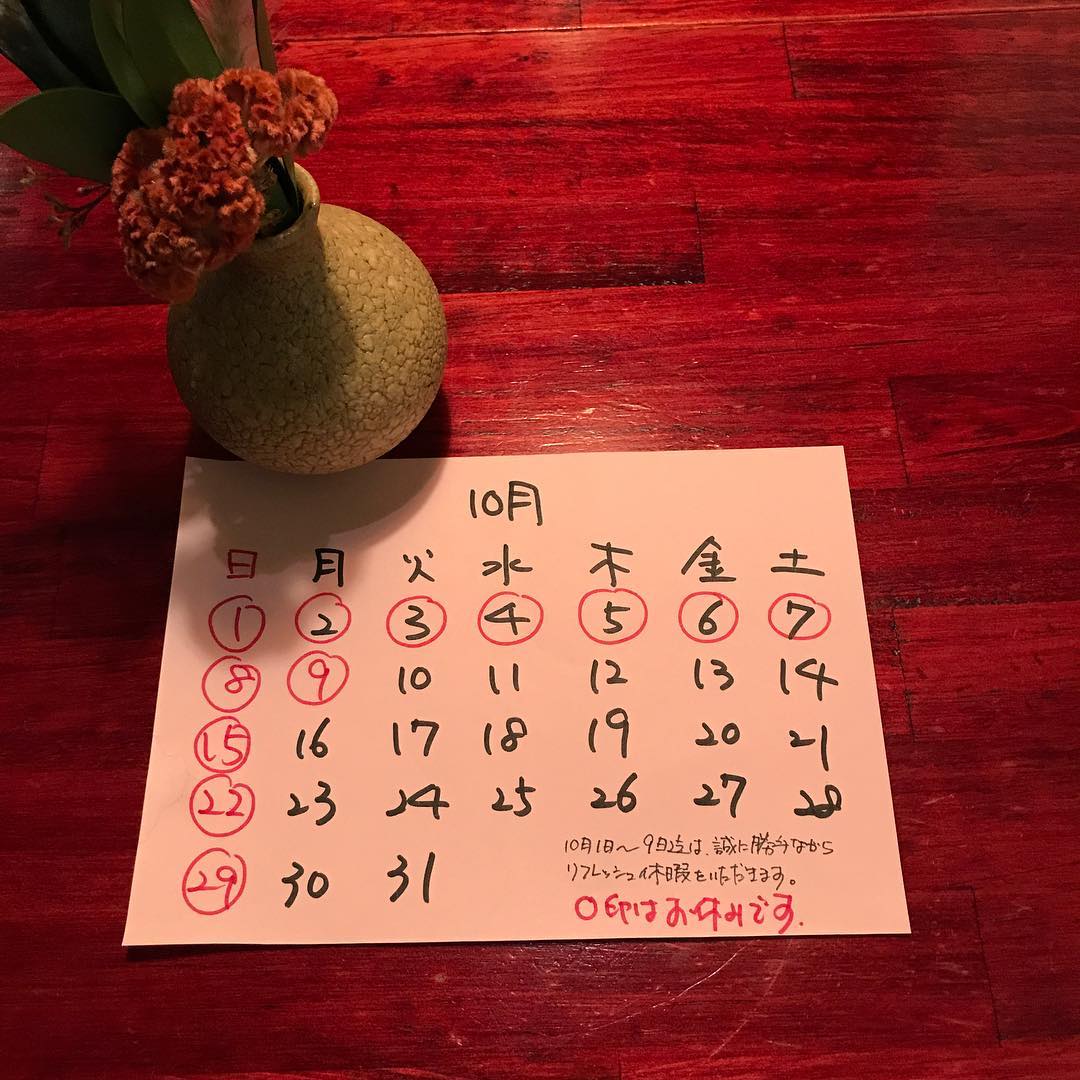 10月
日 月 火 水 木 金 土
1 2 3 4 5 6 7
8 9 10 11 12 13 14
15 16 17 18 19 20 21
22 23 24 25 26 27 28
29 30 31
10月1日〜9日迄は、誠に勝手ながら
リフレッシュ休暇をいただきます。
○印はお休みです.